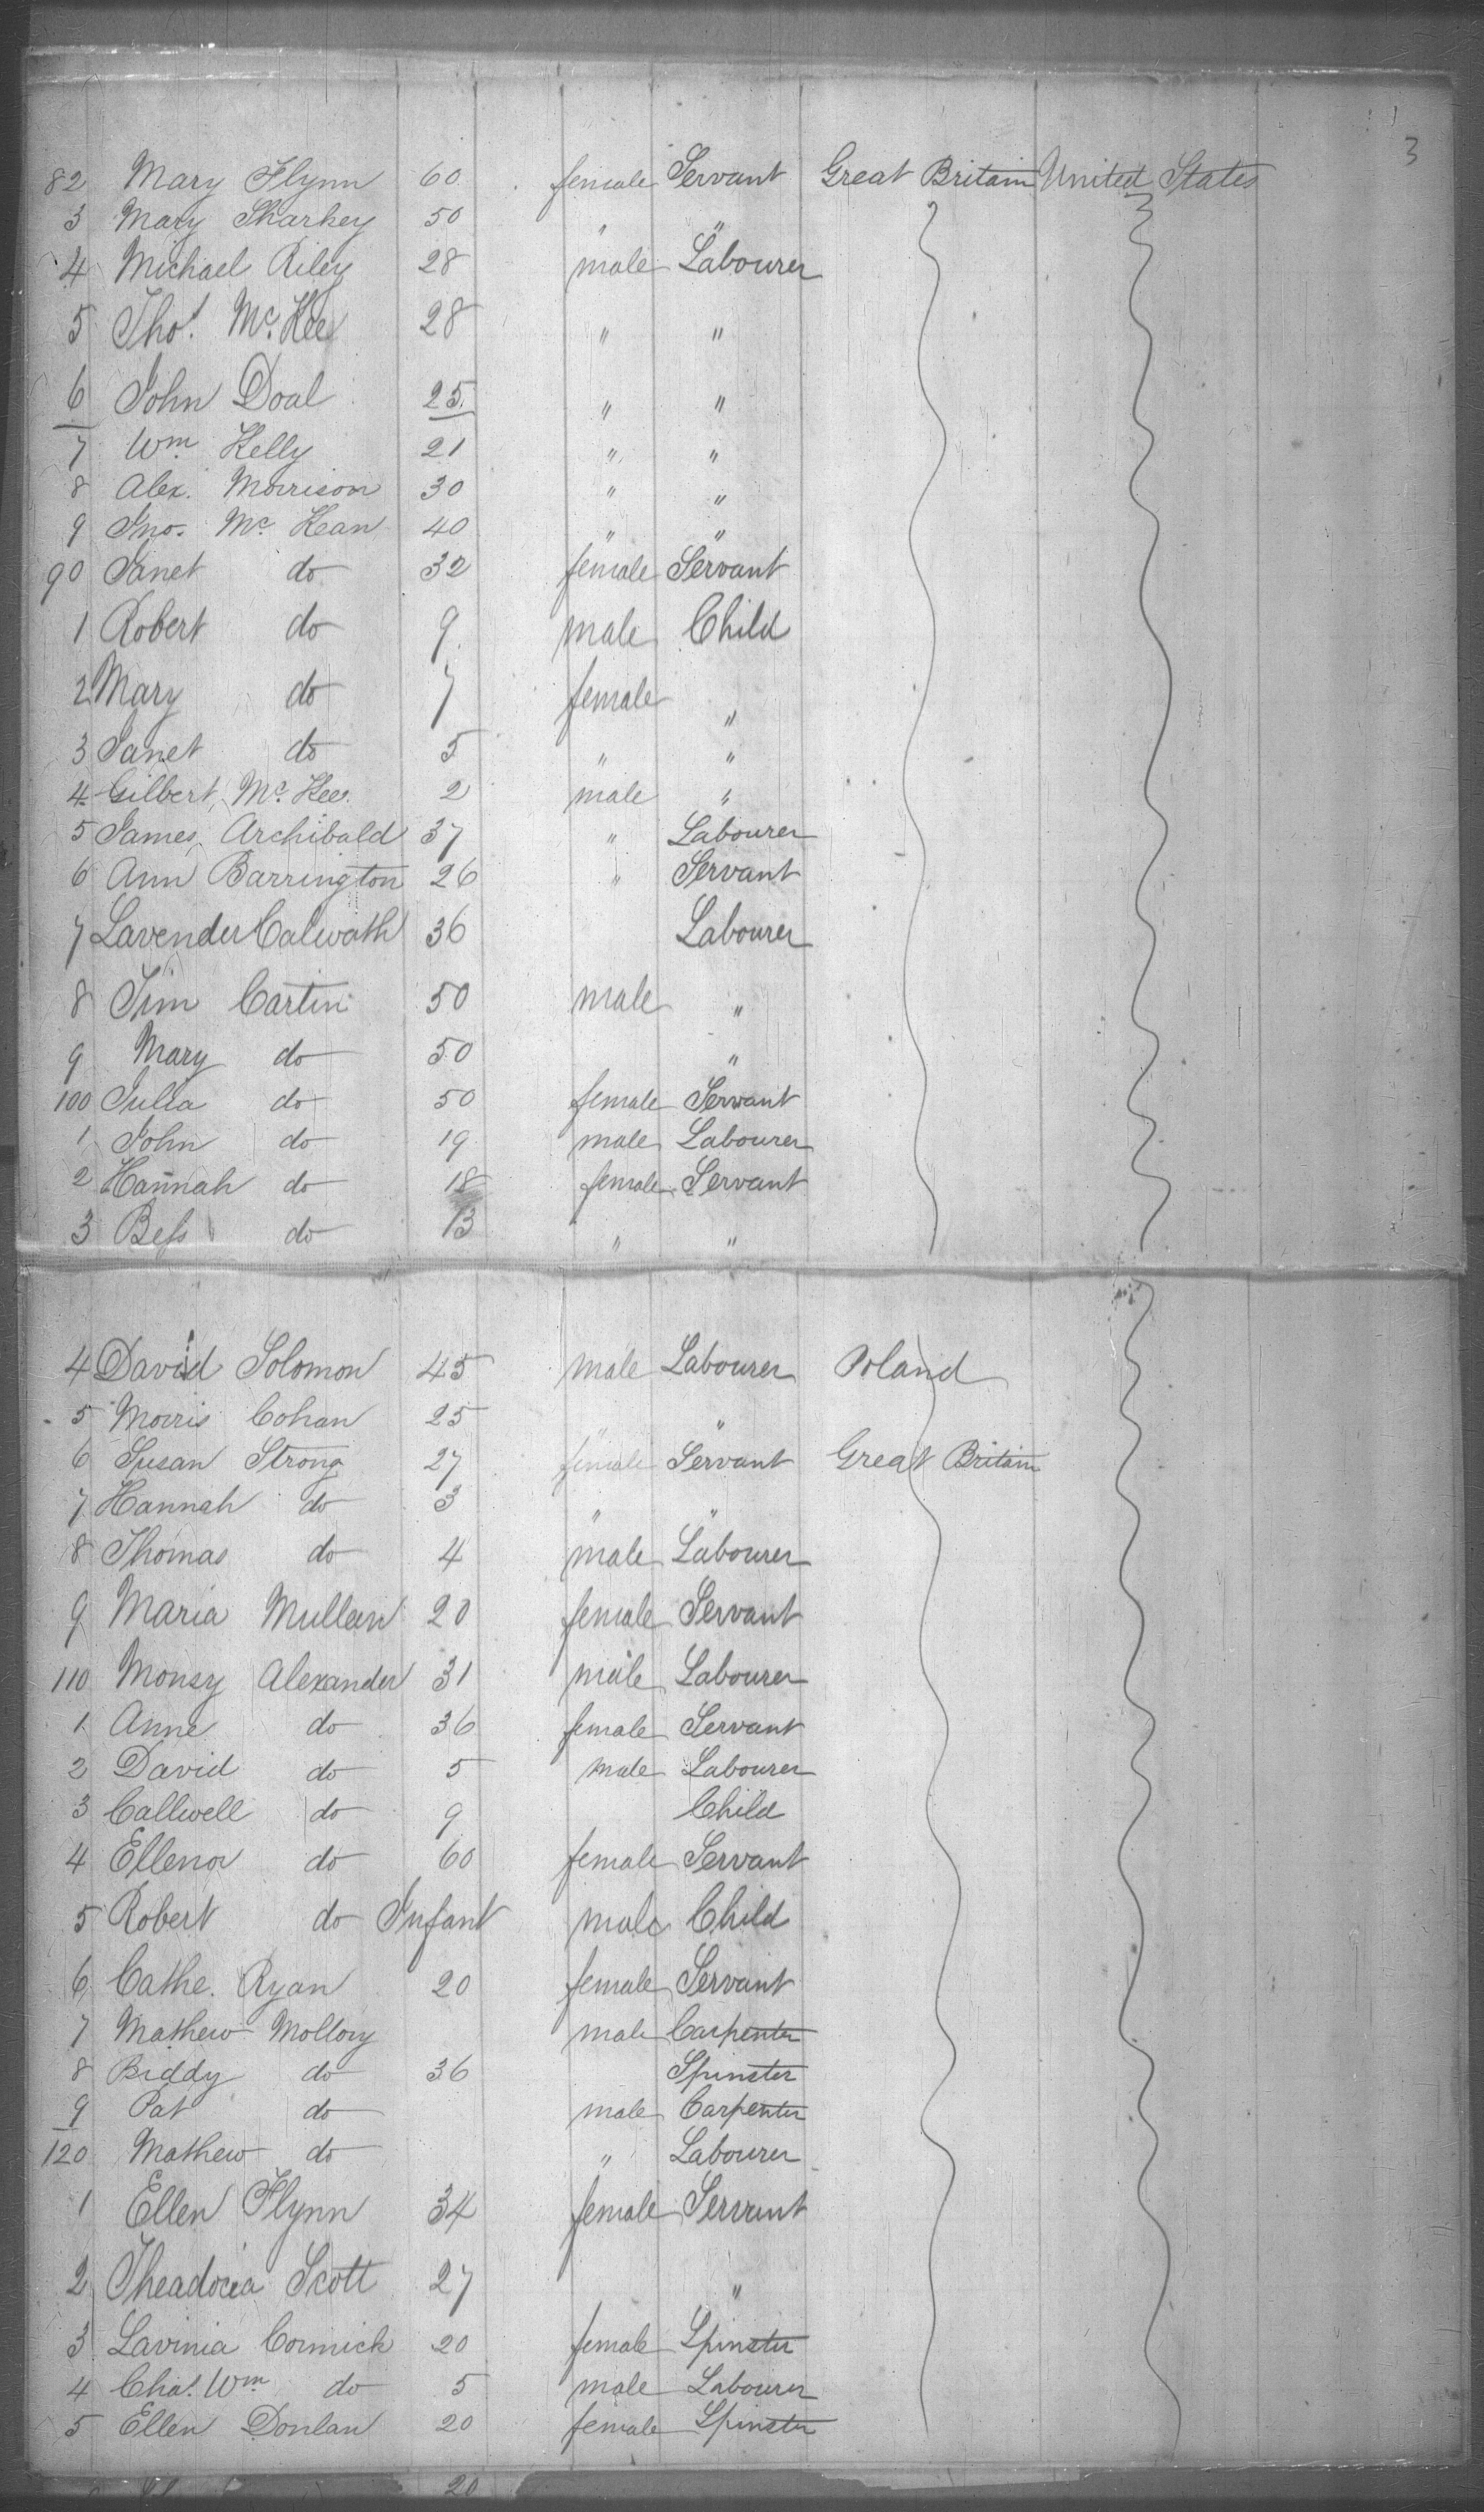 3
82 Mary Flynn 60 female Servant Great Britain United States
3 Mary Sharkey 50 " "
4 Michael Riley 28 male Labourer
5 Thos. Mc. Kee 28 " "
6 John Doal 25 " "
7 Wm. Kelly 21 " "
8 Alex. Morrison 30 " "
9 Jno. Mc. Kean 40 " "
90 Janet do 32 female Servant
1 Robert do 9 male Child
2 Mary do 7 female "
3 Janet do 5 " "
4 Gilbert Mc. Kee 2 male "
5 James Archibald 37 " Labourer
6 Ann Barrington 26 " Servant
7 Lavender Calwath 36 Labourer
8 Tim Cartin 50 male "
9 Mary do 50 "
100 Julia do 50 female Servant
1 John do 19 male Labourer
2 Hannah do 18 female Servant
3 Bess do 13 " "
4 David Solomon 45 male Labourer Poland
5 Morris Cohan 25 " "
6 Susan Strong 27 female Servant Great Britain
7 Hannah do 3 " "
8 Thomas do 4 male Labourer
9 Maria Mullen 20 female Servant
110 Monsy Alexander 31 male Labourer
1 Anne do 36 female Servant
2 David do 5 male Labourer
3 Callwell do 9 Child
4 Ellenor do 60 female Servant
5 Robert do Infant male Child
6 Cathe. Ryan 20 female Servant
7 Mathew Mollory male Carpenter
8 Biddy do 36 Spinster
9 Pat do male Carpenter
120 Mathew do " Labourer
1 Ellen Flynn 34 female Servant
2 Theadocia Scott 27 "
3 Lavinia Cormick 20 female Spinster
4 Chas. Wm do 5 male Labourer
5 Ellen Donlan 20 female Spinster
20